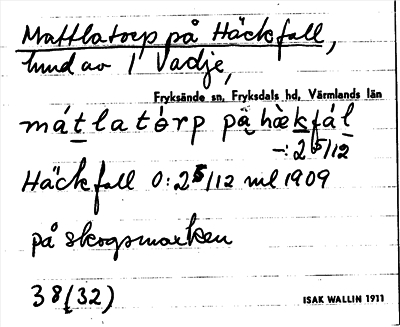 Mattlatorp på Häckfall,
lund av 1 Vadje,
Fryksände sn, Fryksdals hd, Värmlands län
mátlatórp på hækfál
–:2 5/12
Häckfall 0:2 5/12 ml 1909
på skogsmarken
38(32)
ISAK WALLIN 1911